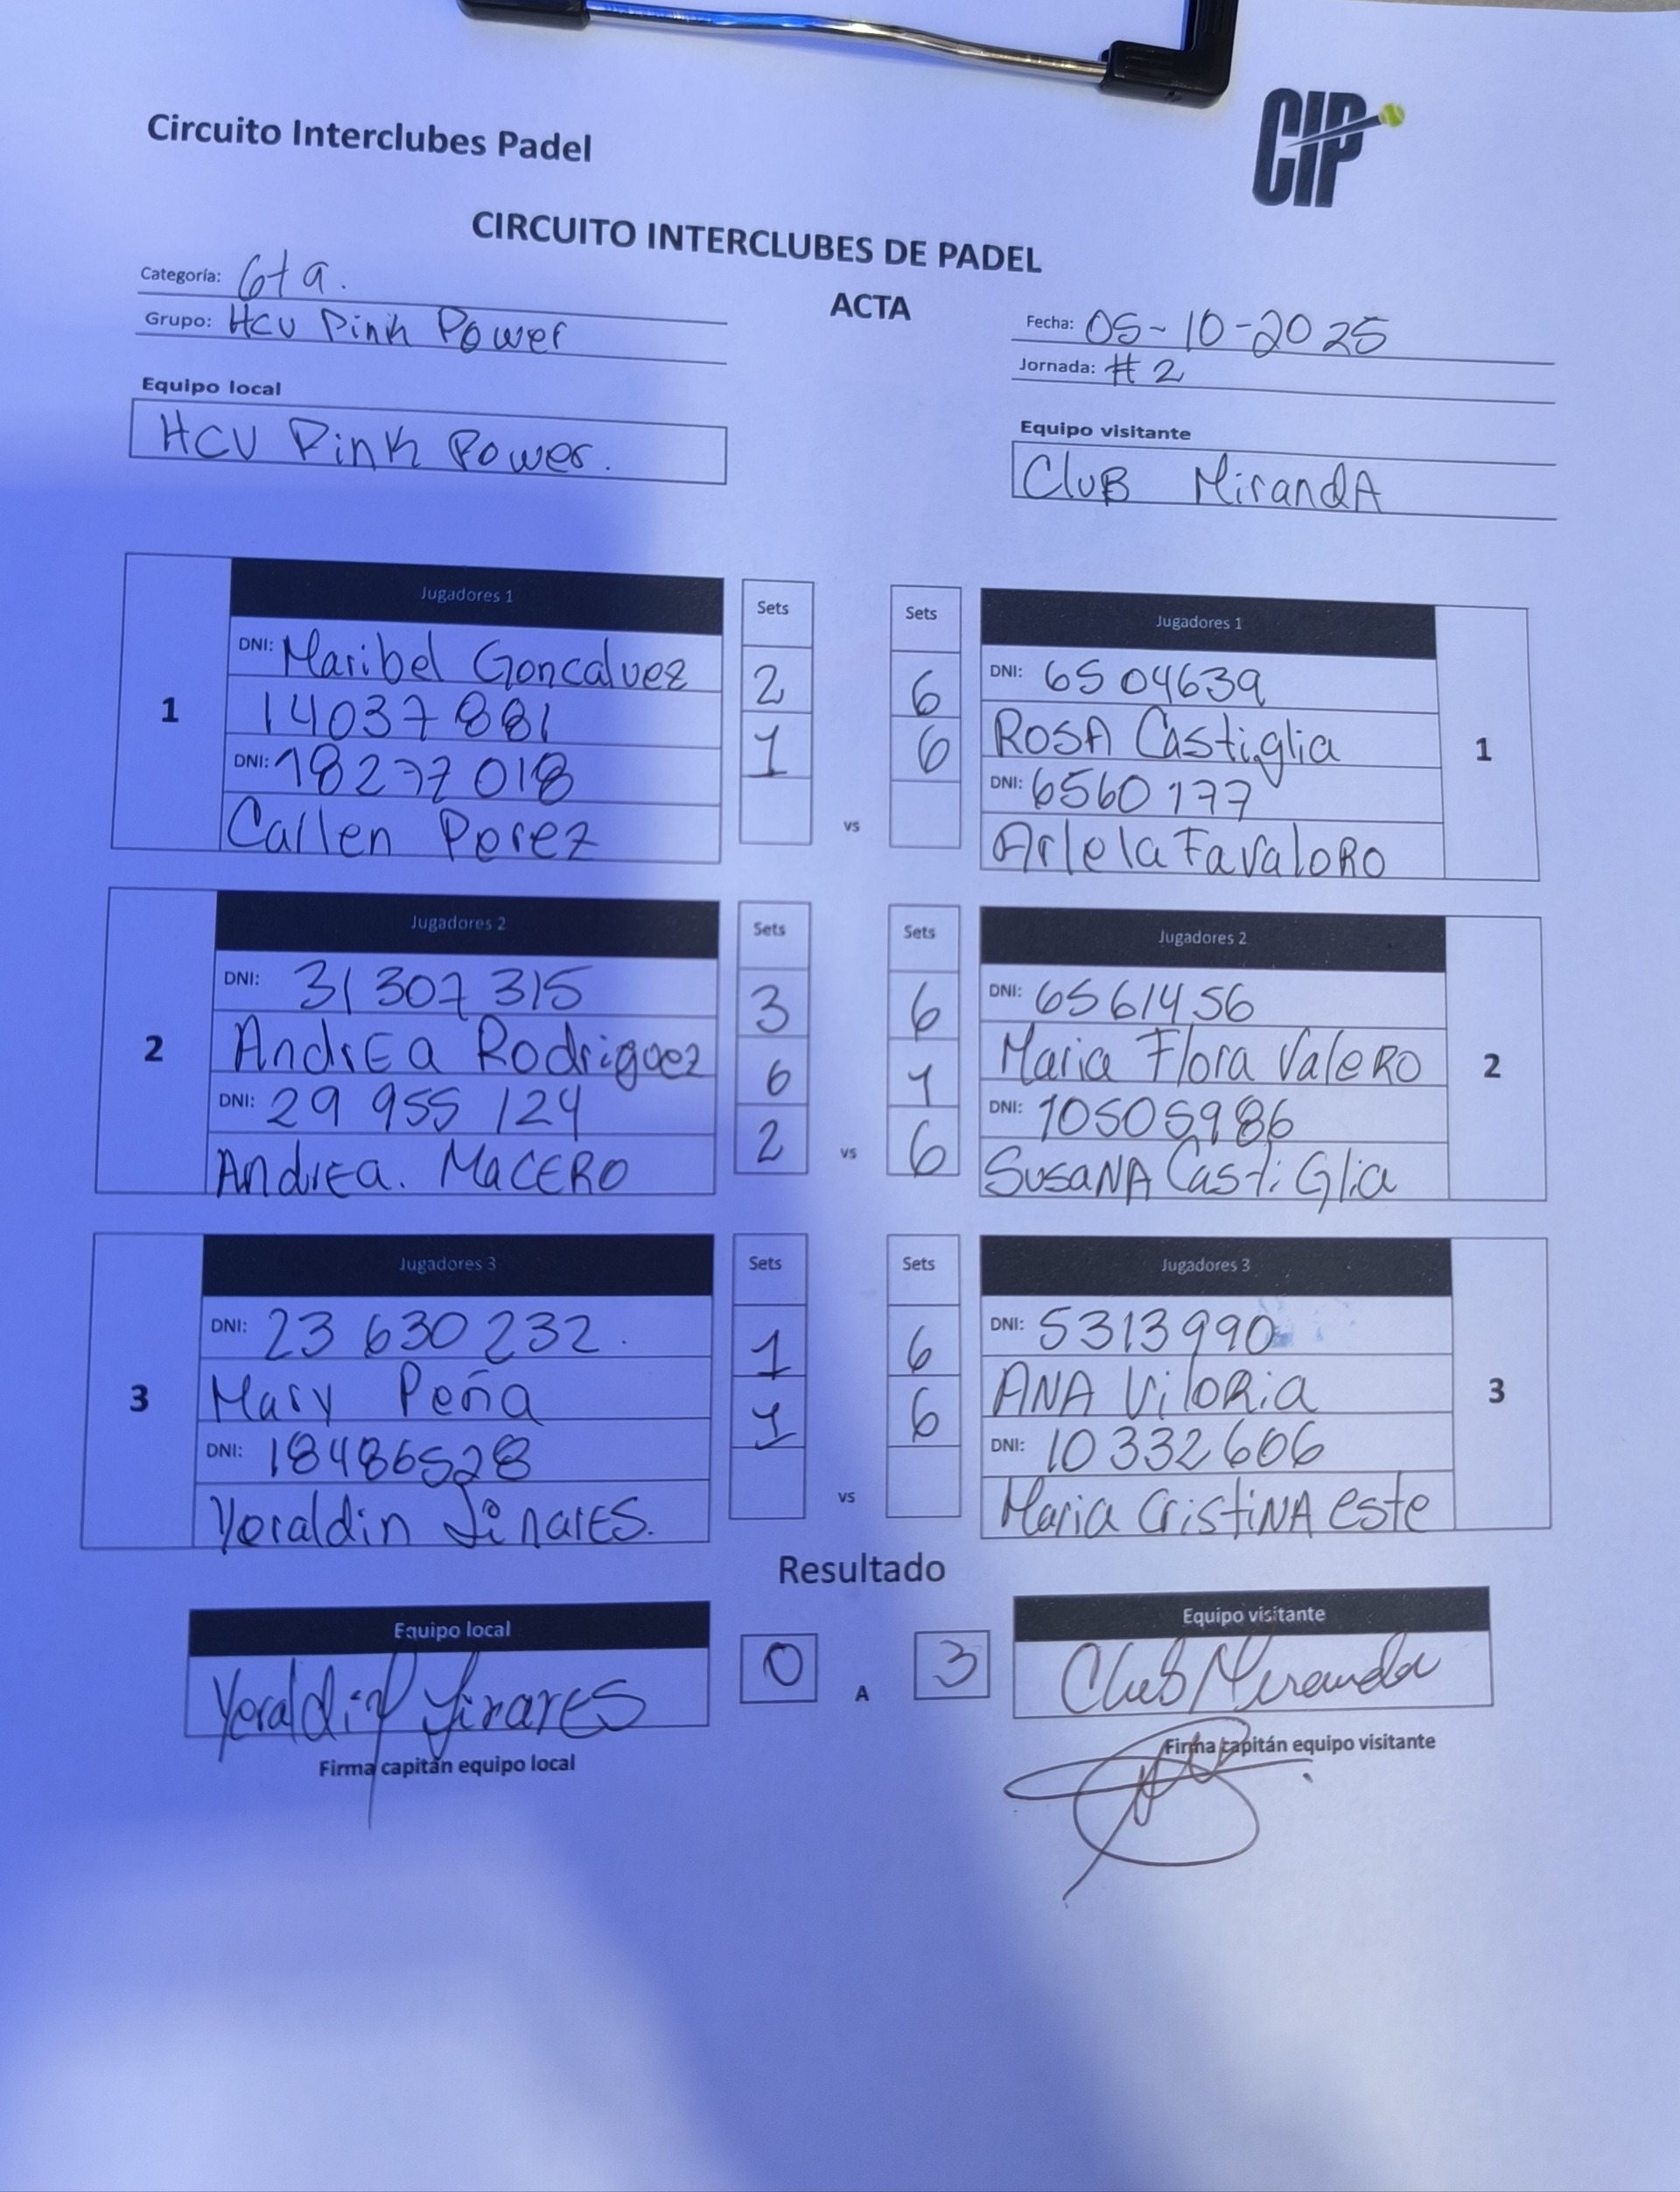 Circuito Interclubes Padel
CIP
CIRCUITO INTERCLUBES DE PADEL
ACTA
Categoría: 6ta.
Grupo: HCU Pink Power
Fecha: 05-10-2025
Jornada: #2
Equipo local
HCU Pink Power.
Equipo visitante
CluB MirandA
1
Jugadores 1
DNI: Maribel Goncalvez
14037881
DNI: 18277018
Callen Perez
Sets
2
1
vs
Sets
6
6
Jugadores 1
DNI: 6504639
ROSA Castiglia
DNI: 6560177
Arlela FavaloRO
1
2
Jugadores 2
DNI: 31307315
AndrEa Rodriguez
DNI: 29 955 124
AndrEa. MaCERO
Sets
3
6
2
vs
Sets
6
1
6
Jugadores 2
DNI: 6561456
Maria Flora ValeRO
DNI: 10505986
SusaNA CastiGlia
2
3
Jugadores 3
DNI: 23 630 232.
Mary Peña
DNI: 18486528
Yeraldin LinarES.
Sets
1
1
vs
Sets
6
6
Jugadores 3
DNI: 5313990
ANA ViloRia
DNI: 10332606
Maria CristiNA este
3
Resultado
Equipo local
Yeraldin LinarES
Firma capitán equipo local
0
A
3
Equipo visitante
Club Miranda
Firma capitán equipo visitante